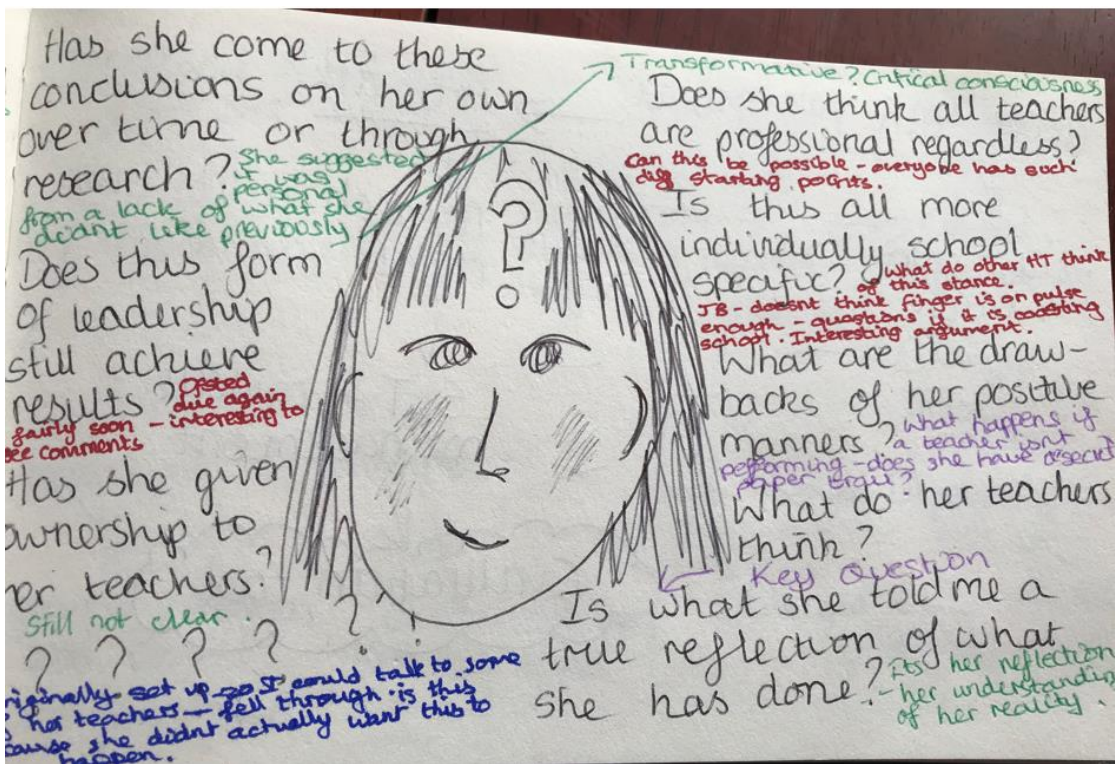 Has she come to these
conclusions on her own
over time or through
research? She suggested
it was
personal
from a lack of what she
didnt like previously
Does this form
of leadership
still achieve
results? Ofsted
due again
fairly soon - interesting to
see comments
Has she given
ownership to
her teachers?
Still not clear.
? ? ? ? ?
originally set up so I could talk to some
her teachers - fell through. is this
cause she didnt actually want this to
happen.
?
Transformative? Critical consciousness
Does she think all teachers
are professional regardless?
Can this be possible - everyone has such
diff starting points.
Is this all more
individually school
specific? What do other HT think
of this stance.
JB - doesnt think finger is on pulse
enough - questions if it is coasting
school. Interesting argument.
What are the draw-
backs of her positive
manners? What happens if
a teacher isnt
performing - does she have a secret
paper
What do her teachers
think?
Key Question
Is what she told me a
true reflection of what
she has done? - Its her reflection
- her understanding
of her reality.